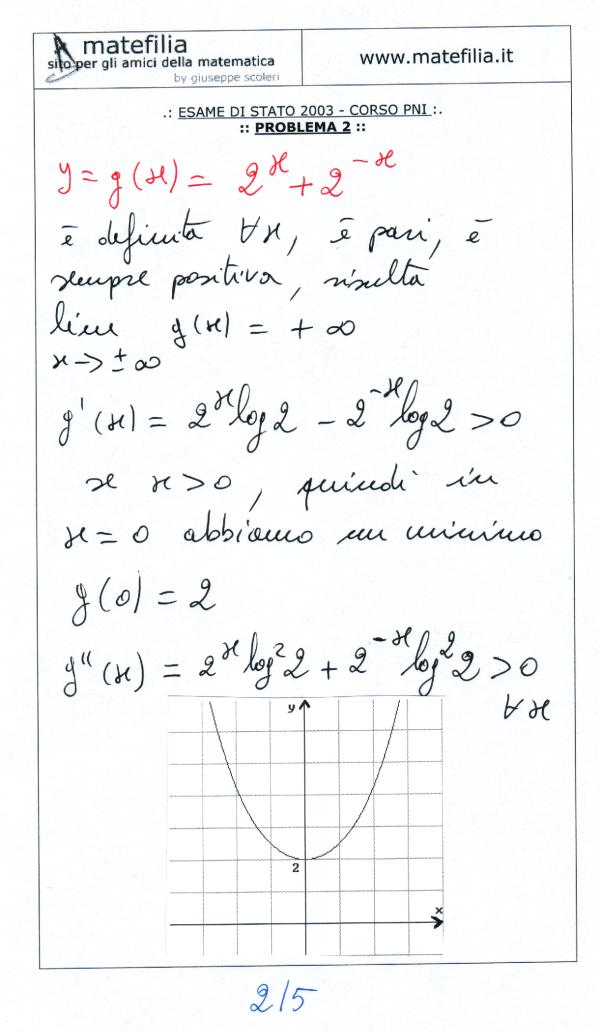 matefilia
sito per gli amici della matematica
by giuseppe scoleri
www.matefilia.it
.: ESAME DI STATO 2003 - CORSO PNI :.
:: PROBLEMA 2 ::
y = g(x) = 2^x + 2^-x
è definita ∀x, è pari, è
sempre positiva, risulta
lim g(x) = + ∞
x → ± ∞
g'(x) = 2^x log 2 - 2^-x log 2 > 0
se x > 0, quindi in
x = 0 abbiamo un minimo
g(0) = 2
g"(x) = 2^x log² 2 + 2^-x log² 2 > 0
∀x
y
2
x
2/5